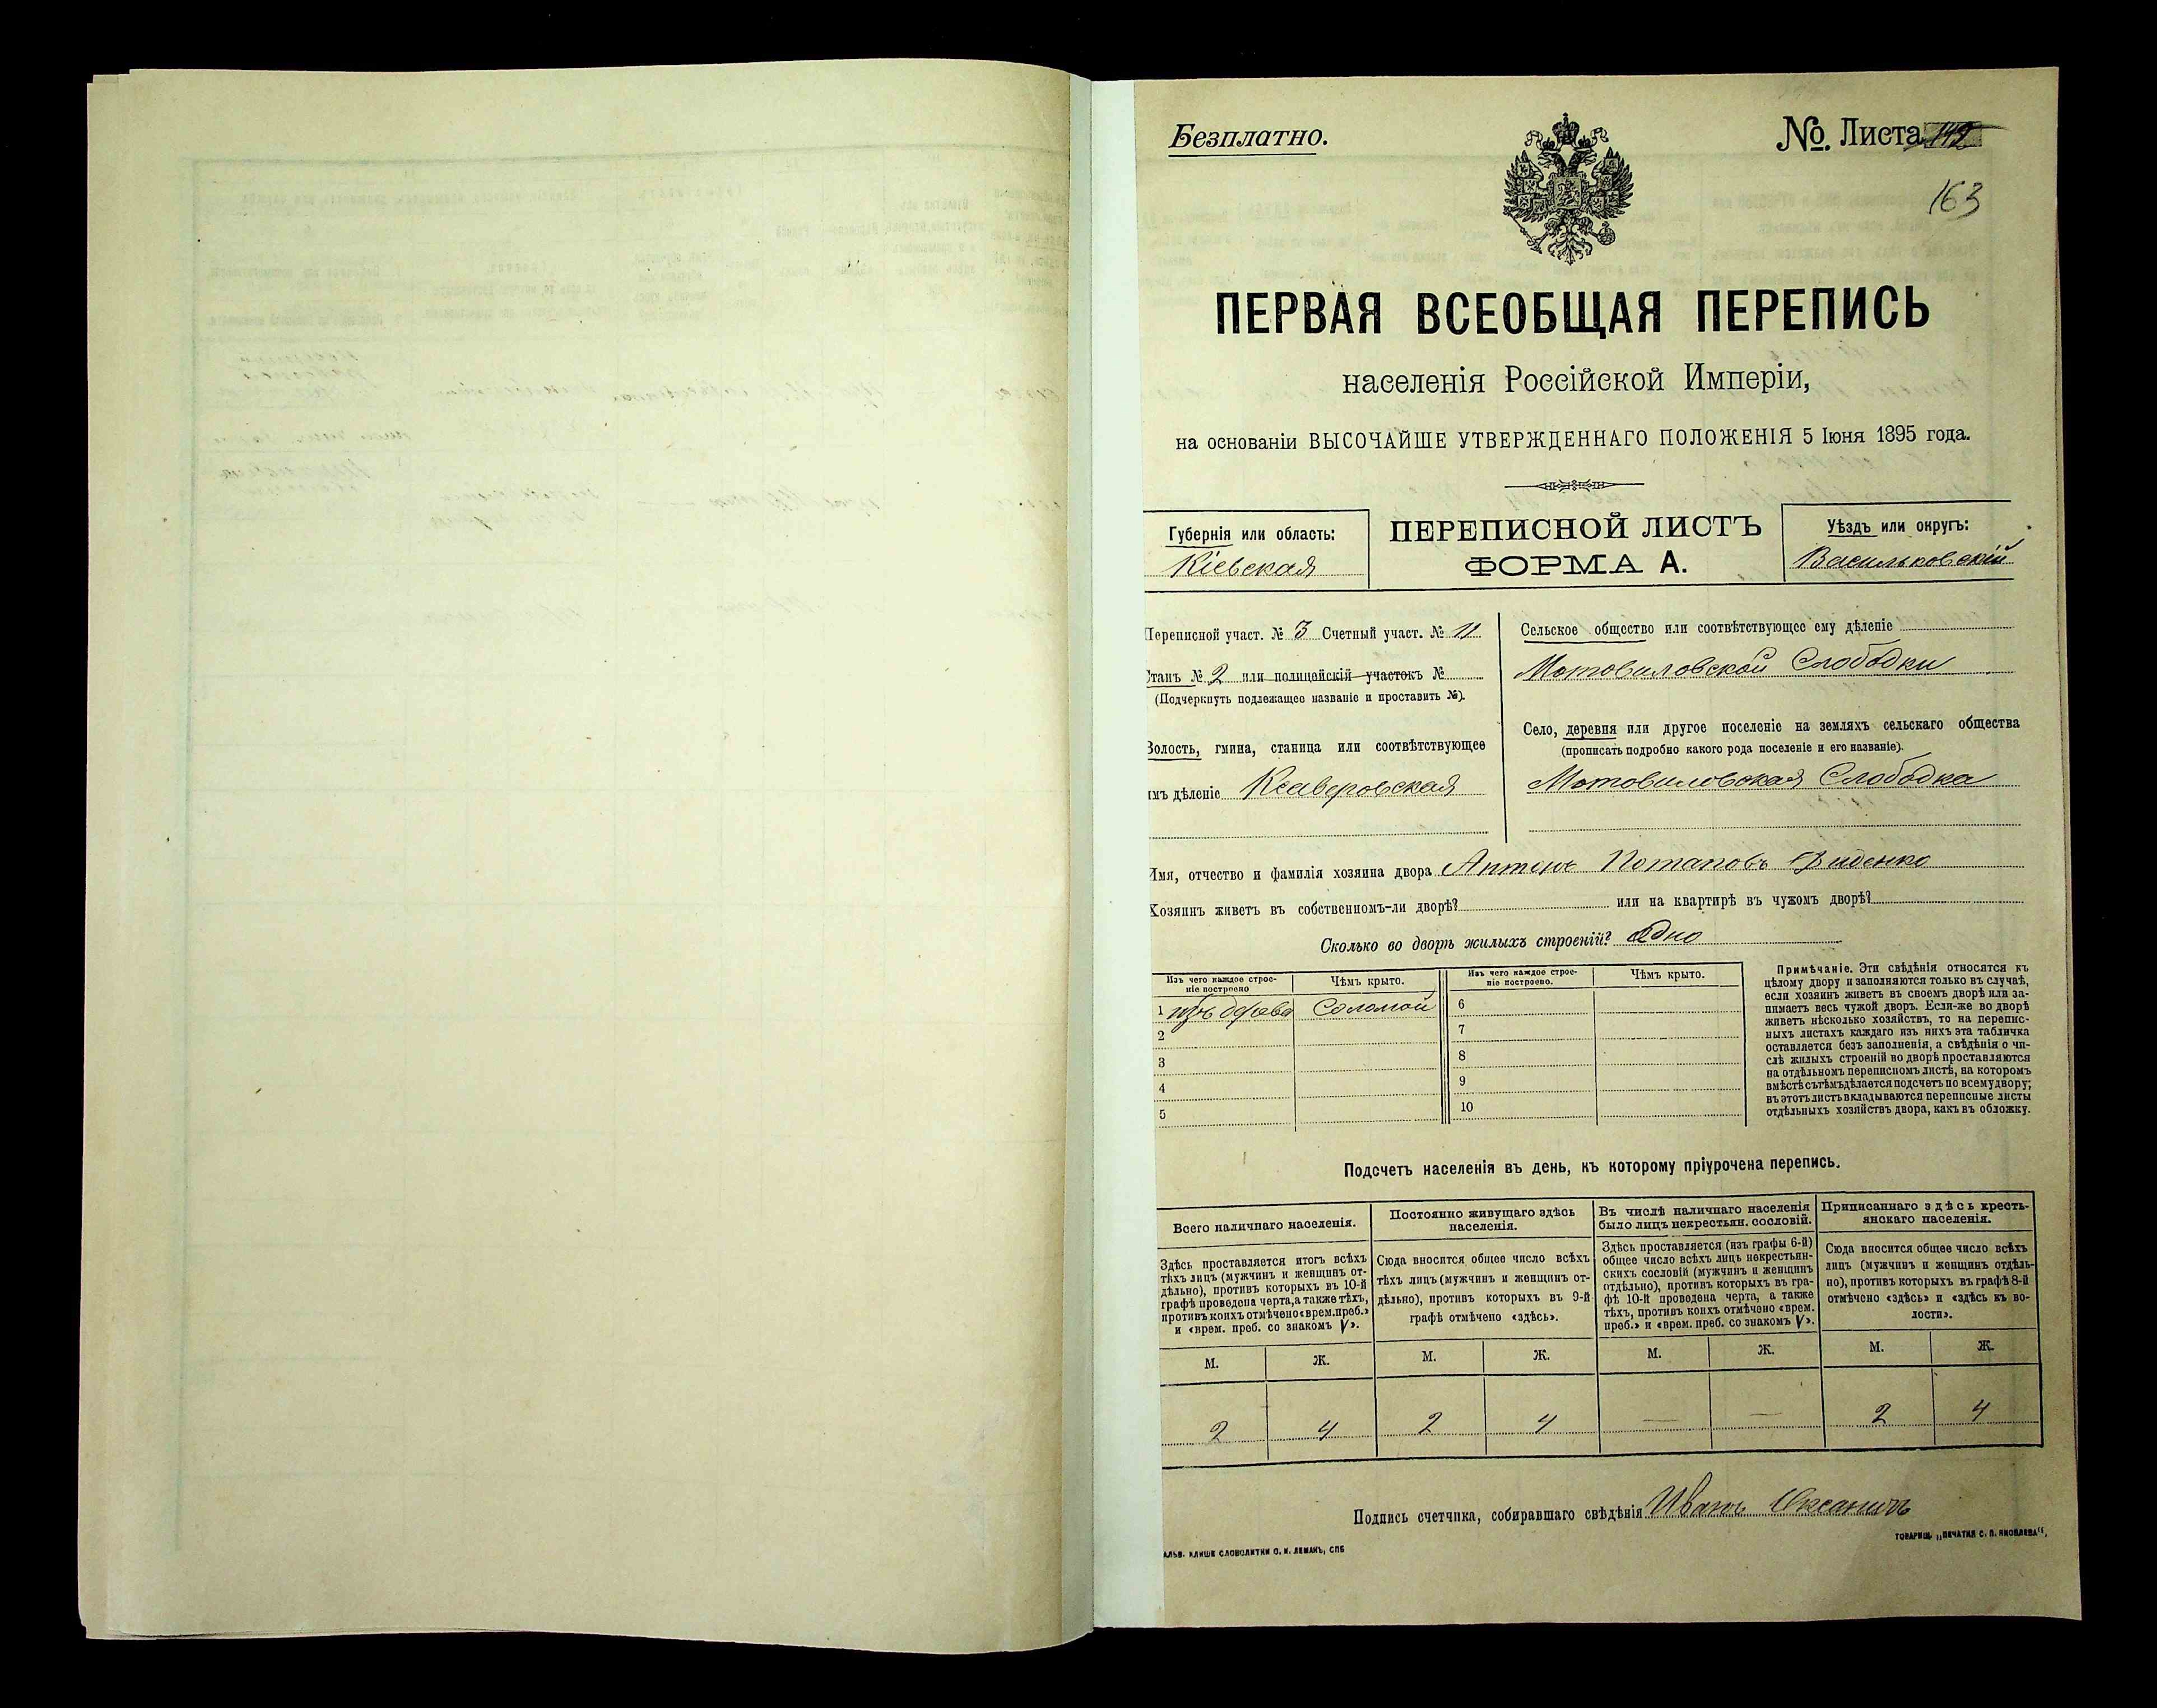 Безплатно.
№. Листа 142
163
ПЕРВАЯ ВСЕОБЩАЯ ПЕРЕПИСЬ
населенія Россійской Имперіи,
на основаніи ВЫСОЧАЙШЕ УТВЕРЖДЕННАГО ПОЛОЖЕНІЯ 5 Іюня 1895 года.
Губернія или область:
Кіевская
ПЕРЕПИСНОЙ ЛИСТЪ
ФОРМА А.
Уѣздъ или округъ:
Васильковскій
Переписной участ. № 3 Счетный участ. № 11
Станъ № 2 или полицейскій участокъ №
(Подчеркнуть подлежащее названіе и проставить №).
Волость, гмина, станица или соотвѣтствующее
имъ дѣленіе Ксаверовская
Сельское общество или соотвѣтствующее ему дѣленіе
Мотовиловской Слободки
Село, деревня или другое поселеніе на земляхъ сельскаго общества
(прописать подробно какого рода поселеніе и его названіе).
Мотовиловская Слободка
Имя, отчество и фамилія хозяина двора Антонъ Потаповъ Диденко
Хозяинъ живетъ въ собственномъ-ли дворѣ? или на квартирѣ въ чужомъ дворѣ?
Сколько во дворѣ жилыхъ строеній? Одно
Изъ чего каждое строе-
ніе построено
Чѣмъ крыто.
Изъ чего каждое строе-
ніе построено.
Чѣмъ крыто.
1 изъ дерева Соломой 6
2 7
3 8
4 9
5 10
Примѣчаніе. Эти свѣдѣнія относятся къ
цѣлому двору и заполняются только въ случаѣ,
если хозяинъ живетъ въ своемъ дворѣ или за-
нимаетъ весь чужой дворъ. Если-же во дворѣ
живетъ нѣсколько хозяйствъ, то на перепис-
ныхъ листахъ каждаго изъ нихъ эта табличка
оставляется безъ заполненія, а свѣдѣнія о чи-
слѣ жилыхъ строеній во дворѣ проставляются
на отдѣльномъ переписномъ листѣ, на которомъ
вмѣстѣ съ тѣмъ дѣлается подсчетъ по всему двору;
въ этотъ листъ вкладываются переписные листы
отдѣльныхъ хозяйствъ двора, какъ въ обложку.
Подсчетъ населенія въ день, къ которому пріурочена перепись.
Всего наличнаго населенія.
Постоянно живущаго здѣсь
населенія.
Въ числѣ наличнаго населенія
было лицъ некрестьян. сословій.
Приписаннаго здѣсь кресть-
янскаго населенія.
Здѣсь проставляется итогъ всѣхъ
тѣхъ лицъ (мужчинъ и женщинъ от-
дѣльно), противъ которыхъ въ 10-й
графѣ проведена черта, а также тѣхъ,
противъ коихъ отмѣчено «врем. преб.»
и «врем. преб. со знакомъ V».
Сюда вносится общее число всѣхъ
тѣхъ лицъ (мужчинъ и женщинъ от-
дѣльно), противъ которыхъ въ 9-й
графѣ отмѣчено «здѣсь».
Здѣсь проставляется (изъ графы 6-й)
общее число всѣхъ лицъ некрестьян-
скихъ сословій (мужчинъ и женщинъ
отдѣльно), противъ которыхъ въ гра-
фѣ 10-й проведена черта, а также
тѣхъ, противъ коихъ отмѣчено «врем.
преб.» и «врем. преб. со знакомъ V».
Сюда вносится общее число всѣхъ
лицъ (мужчинъ и женщинъ отдѣль-
но), противъ которыхъ въ графѣ 8-й
отмѣчено «здѣсь» и «здѣсь къ во-
лости».
М. Ж. М. Ж. М. Ж. М. Ж.
2 4 2 4 — — 2 4
Подпись счетчика, собиравшаго свѣдѣнія Иванъ
АЛЬВ. КЛИШЕ СЛОВОЛИТНИ О. И. ЛЕМАНЪ, СПБ
ТОВАРИЩ. „ПЕЧАТНЯ С. П. ЯКОВЛЕВА“,